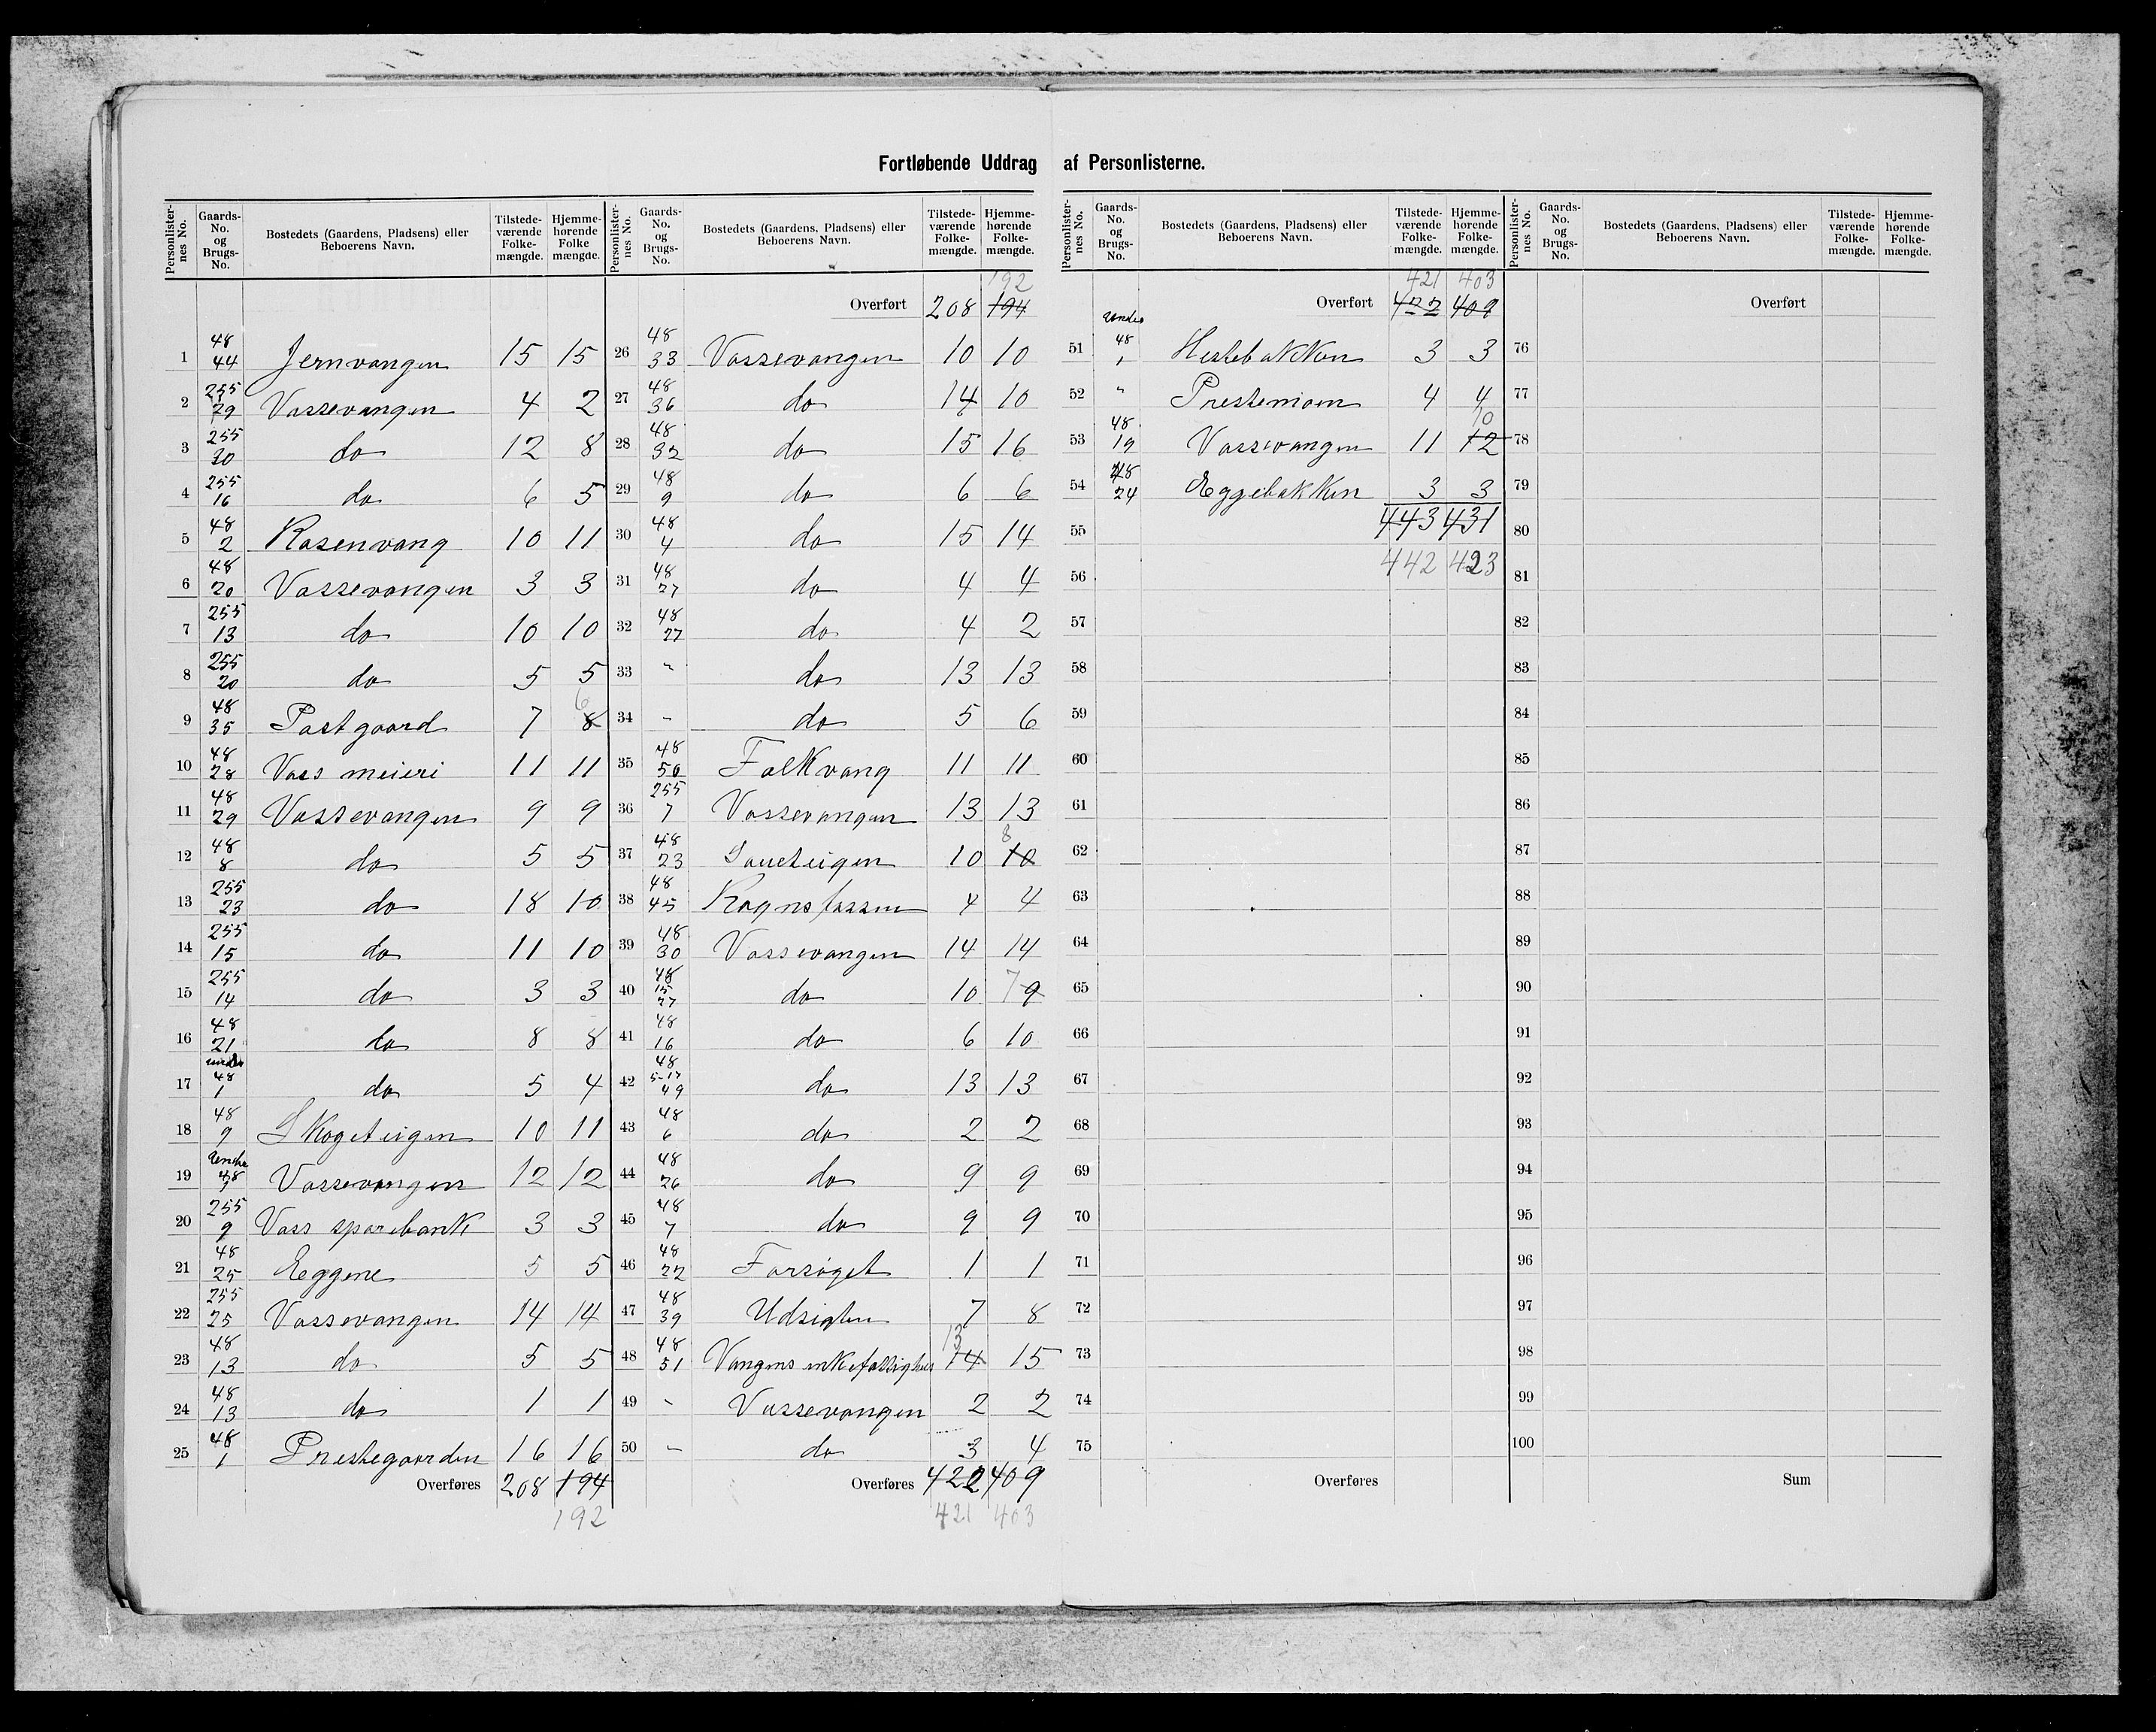 Fortløbende Uddrag af Personlisterne.
Personlister-nes No. | Gaards-No. og Brugs-No. | Bostedets (Gaardens, Pladsens) eller Beboerens Navn. | Tilstede-værende Folke-mængde. | Hjemme-hørende Folke mængde.
1 | 48 44 | Jernvangen | 15 | 15
2 | 255 29 | Vossevangen | 4 | 2
3 | 255 30 | do | 12 | 8
4 | 255 16 | do | 6 | 5
5 | 48 2 | Rosenvang | 10 | 11
6 | 48 20 | Vossevangen | 3 | 3
7 | 255 13 | do | 10 | 10
8 | 255 20 | do | 5 | 5
9 | 48 35 | Postgaard | 7 | 8 6
10 | 48 28 | Voss meieri | 11 | 11
11 | 48 29 | Vossevangen | 9 | 9
12 | 48 8 | do | 5 | 5
13 | 255 23 | do | 18 | 10
14 | 255 15 | do | 11 | 10
15 | 255 14 | do | 3 | 3
16 | 48 21 | do | 8 | 8
17 | under 48 1 | do | 5 | 4
18 | 48 9 | Skogeteigen | 10 | 11
19 | Under 48 1 | Vossevangen | 12 | 12
20 | 255 9 | Voss sparebank | 3 | 3
21 | 48 25 | Eggene | 5 | 5
22 | 255 25 | Vossevangen | 14 | 14
23 | 48 13 | do | 5 | 5
24 | 48 13 | do | 1 | 1
25 | 48 1 | Prestegaarden | 16 | 16
Overføres 208 | 194
192
Personlister-nes No. | Gaards-No. og Brugs-No. | Bostedets (Gaardens, Pladsens) eller Beboerens Navn. | Tilstede-værende Folke-mængde. | Hjemme-hørende Folke-mængde.
192
Overført 208 | 194
26 | 48 33 | Vossevangen | 10 | 10
27 | 48 36 | do | 14 | 10
28 | 48 32 | do | 15 | 16
29 | 48 9 | do | 6 | 6
30 | 48 4 | do | 15 | 14
31 | 48 27 | do | 4 | 4
32 | 48 27 | do | 4 | 2
33 | " | do | 13 | 13
34 | - | do | 5 | 6
35 | 48 50 | Folkvang | 11 | 11
36 | 255 7 | Vossevangen | 13 | 13
37 | 48 23 | Saueteigen | 10 | 10 8
38 | 48 45 | Rognsfossen | 4 | 4
39 | 48 30 | Vossevangen | 14 | 14
40 | 48 15 27 | do | 10 | 7 9
41 | 48 16 | do | 6 | 10
42 | 48 5-17 49 | do | 13 | 13
43 | 48 6 | do | 2 | 2
44 | 48 26 | do | 9 | 9
45 | 48 7 | do | 9 | 9
46 | 48 22 | Forsøget | 1 | 1
47 | 48 39 | Udsigten | 7 | 8
48 | 48 51 | Vangens enkefattighus | 14 13 | 15
49 | " | Vossevangen | 2 | 2
50 | " | do | 3 | 4
Overføres 422 | 409
421 403
Personlister-nes No. | Gaards-No. og Brugs-No. | Bostedets (Gaardens, Pladsens) eller Beboerens Navn. | Tilstede-værende Folke-mængde. | Hjemme-hørende Folke-mængde.
421 403
Overført 422 | 409
51 | Under 48 1 | Hestebakken | 3 | 3
52 | " | Prestemoen | 4 | 4
53 | 48 19 | Vossevangen | 11 | 12 10
54 | 48 24 | Eggebakken | 3 | 3
55 | 443 | 431
56 | 442 | 423
57
58
59
60
61
62
63
64
65
66
67
68
69
70
71
72
73
74
75
Overføres
Personlister-nes No. | Gaards-No. og Brugs-No. | Bostedets (Gaardens, Pladsens) eller Beboerens Navn. | Tilstede-værende Folke-mængde. | Hjemme-hørende Folke-mængde.
Overført
76
77
78
79
80
81
82
83
84
85
86
87
88
89
90
91
92
93
94
95
96
97
98
99
100
Sum